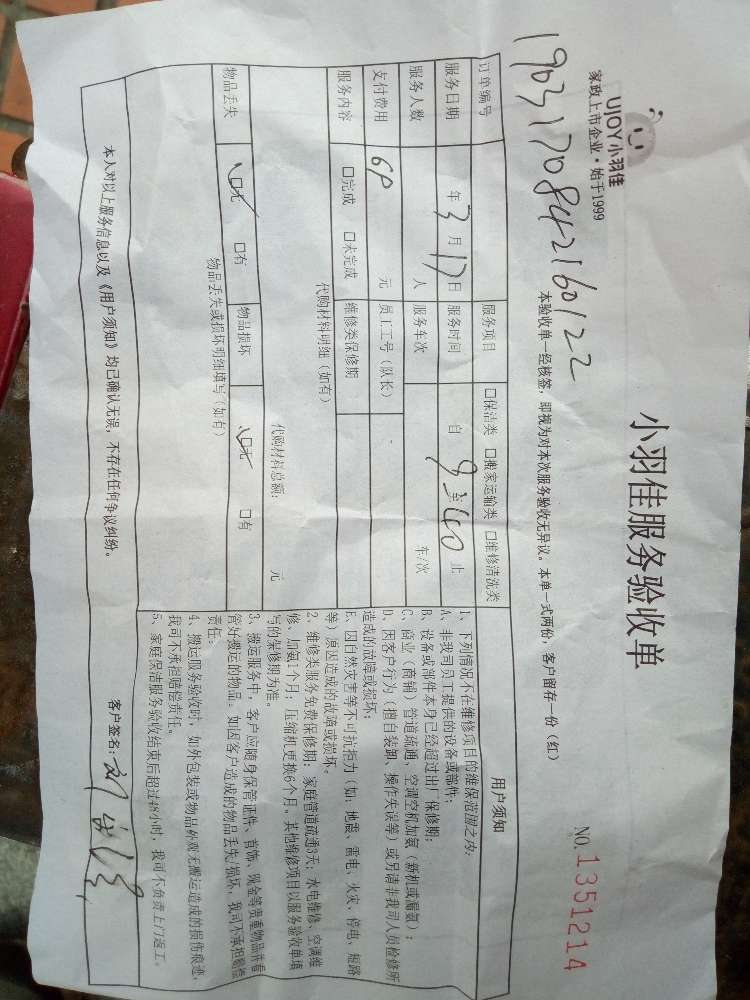 UJOY小羽佳
家政上市企业·始于1999
小羽佳服务验收单
NO.1351214
1903170842160122
本验收单一经核签，即视为对本次服务验收无异议。本单一式两份，客户留存一份（红）
订单编号 服务项目 □保洁类 □搬家运输类 □维修清洗类
服务日期 年3月17日 服务时间 自9至 止
服务人数 人 服务车次 车/次
支付费用 60 元 员工工号（队长）
服务内容 □完成 □未完成 维修类保修期
代购材料明细（如有）
代购材料总额： 元
物品丢失 ☑无 □有 物品损坏 ☑无 □有
物品丢失或损坏明细填写（如有）
用户须知
1、下列情况不在维修项目的维保范围之内：
A、非我司员工提供的设备或部件；
B、设备或部件本身已经超过出厂保修期；
C、商业（商铺）管道疏通、空调空机加氨（新机或漏氨）；
D、因客户行为（擅自装卸、操作失误等）或另请非我司人员检修所
造成的故障或损坏；
E、因自然灾害等不可抗拒力（如：地震、雷电、火灾、停电、短路
等）原因造成的故障或损坏。
2、维修类服务免费保修期：家庭管道疏通3天；水电维修、空调维
修、加氨1个月；压缩机更换6个月。其他维修项目以服务验收单填
写的保修期为准。
3、搬运服务中，客户应随身保管证件、首饰、现金等贵重物品并看
管好搬运的物品。如因客户造成的物品丢失/损坏，我司不承担赔偿
责任。
4、搬运服务验收时，如外包装或物品外观无搬运造成的损伤痕迹，
我司不承担赔偿责任。
5、家庭保洁服务验收结束后超过48小时，我司不负责上门返工。
本人对以上服务信息以及《用户须知》均已确认无误，不存在任何争议纠纷。
客户签名：刘